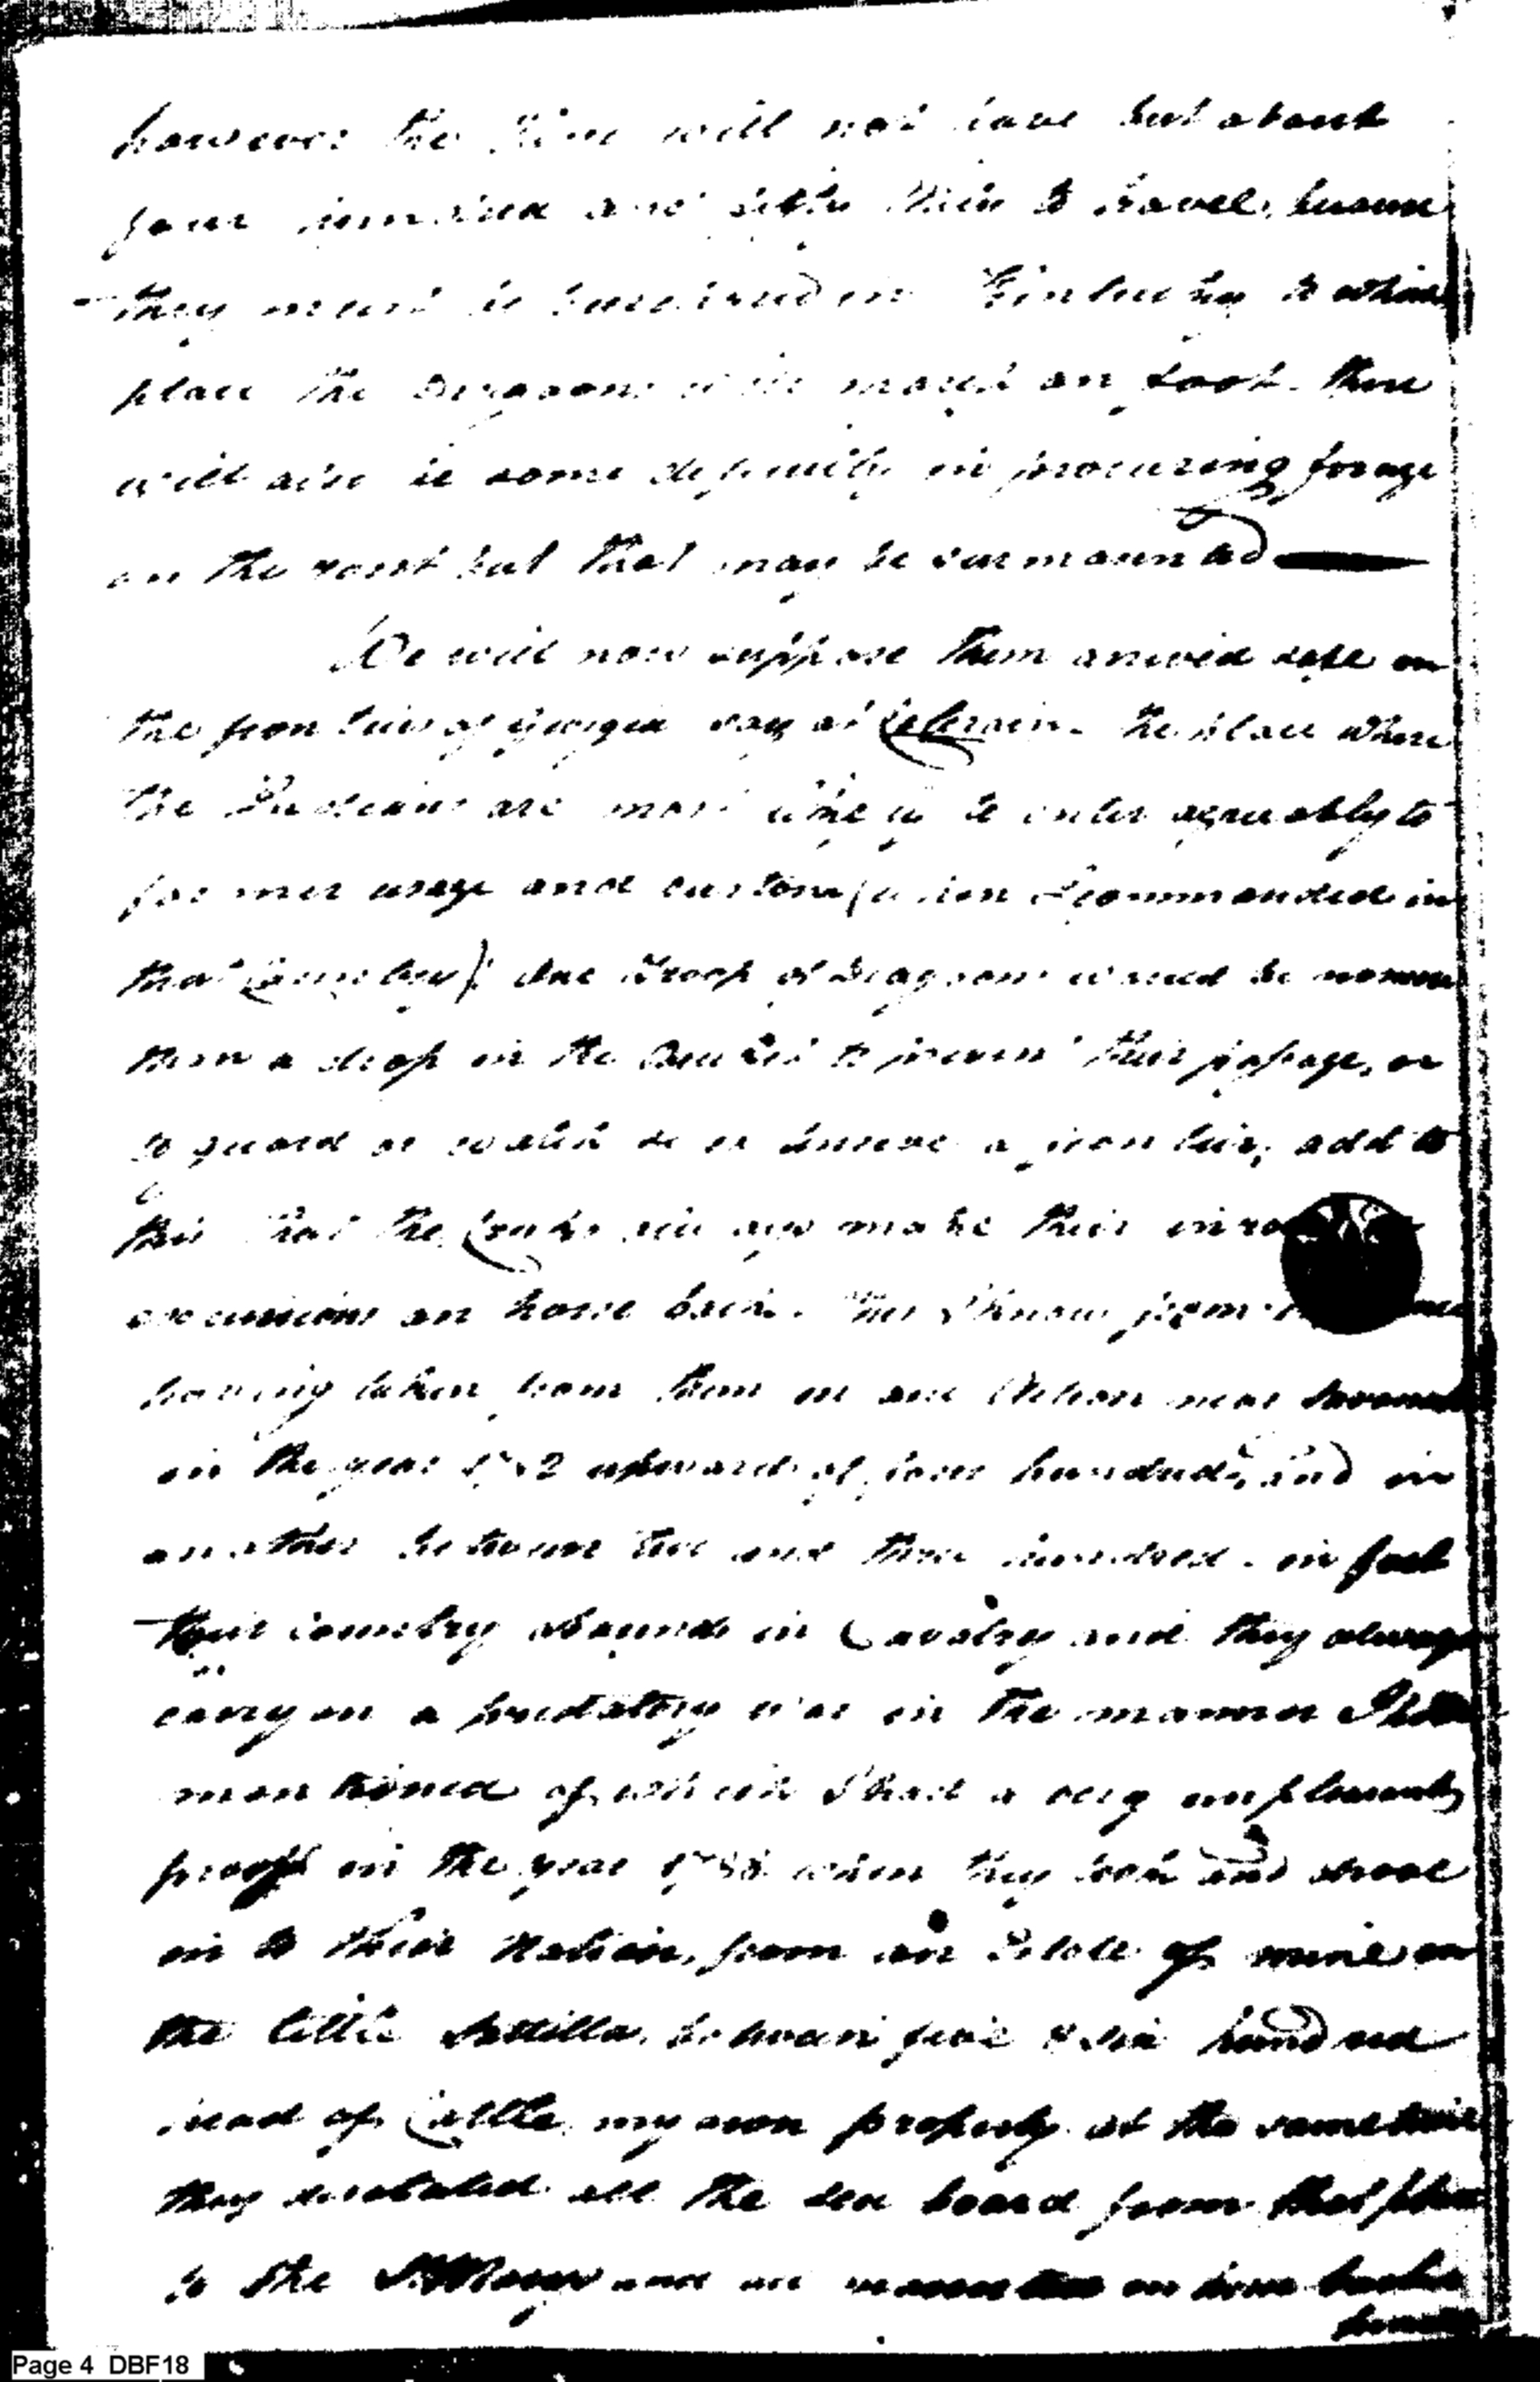 however the will not have but about
four hundred and fifty Miles to travel, because
they must be purchased in Kentucky to which
place the Dragoons will march on foot. there
will also be some dificulty in procuring forage
on the rout but that may be surmounted
We will now suppose them arrived safe on
the frontiers of Georgia say at Colerain. the place where
the Indians are most likely to enter agreeably to
former usage and custom (when I commanded in
that Country) one Troop of Dragoons would be no more
than a drop in the Bucket to prevent their passage, or
to guard or watch so extensive a frontier, add to
this that the Creeks always make their
excursions on horse back. this I know from
having taken from them in one Action near Savannah
in the year 1782 upwards of four hundred, and in
another between two and three hundred. in fact
their country abounds in Cavalry and they always
carry on a predatory war in the manner I have
mentioned of which I had a very unpleasant
proof in the year 1788 when they took and drove
in to their Nation, from an Estate of mine on
the little Sattilla, between five & six hundred
head of Cattle my own property at the same time
they desolated all the sea board from that place
to the St Marys and all mounted on horse back